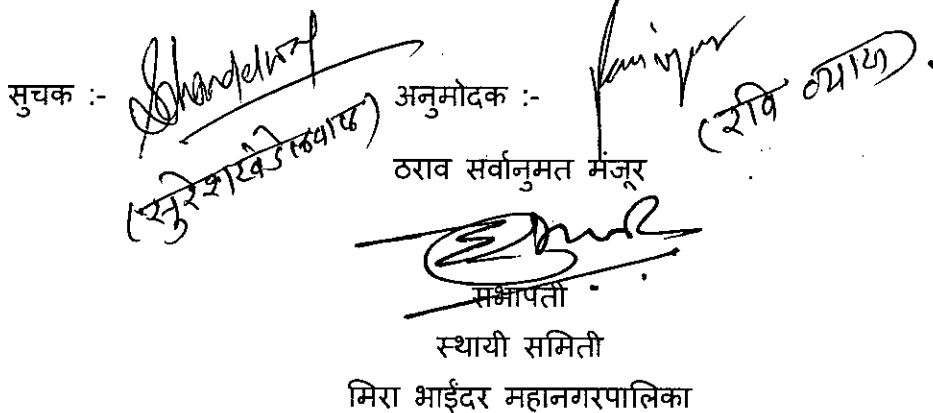 सुचक :- अनुमोदक :-
(सुरेश खंडेलवाल) (रवि व्यास).
ठराव सर्वानुमत मंजूर
सभापती
स्थायी समिती
मिरा भाईंदर महानगरपालिका